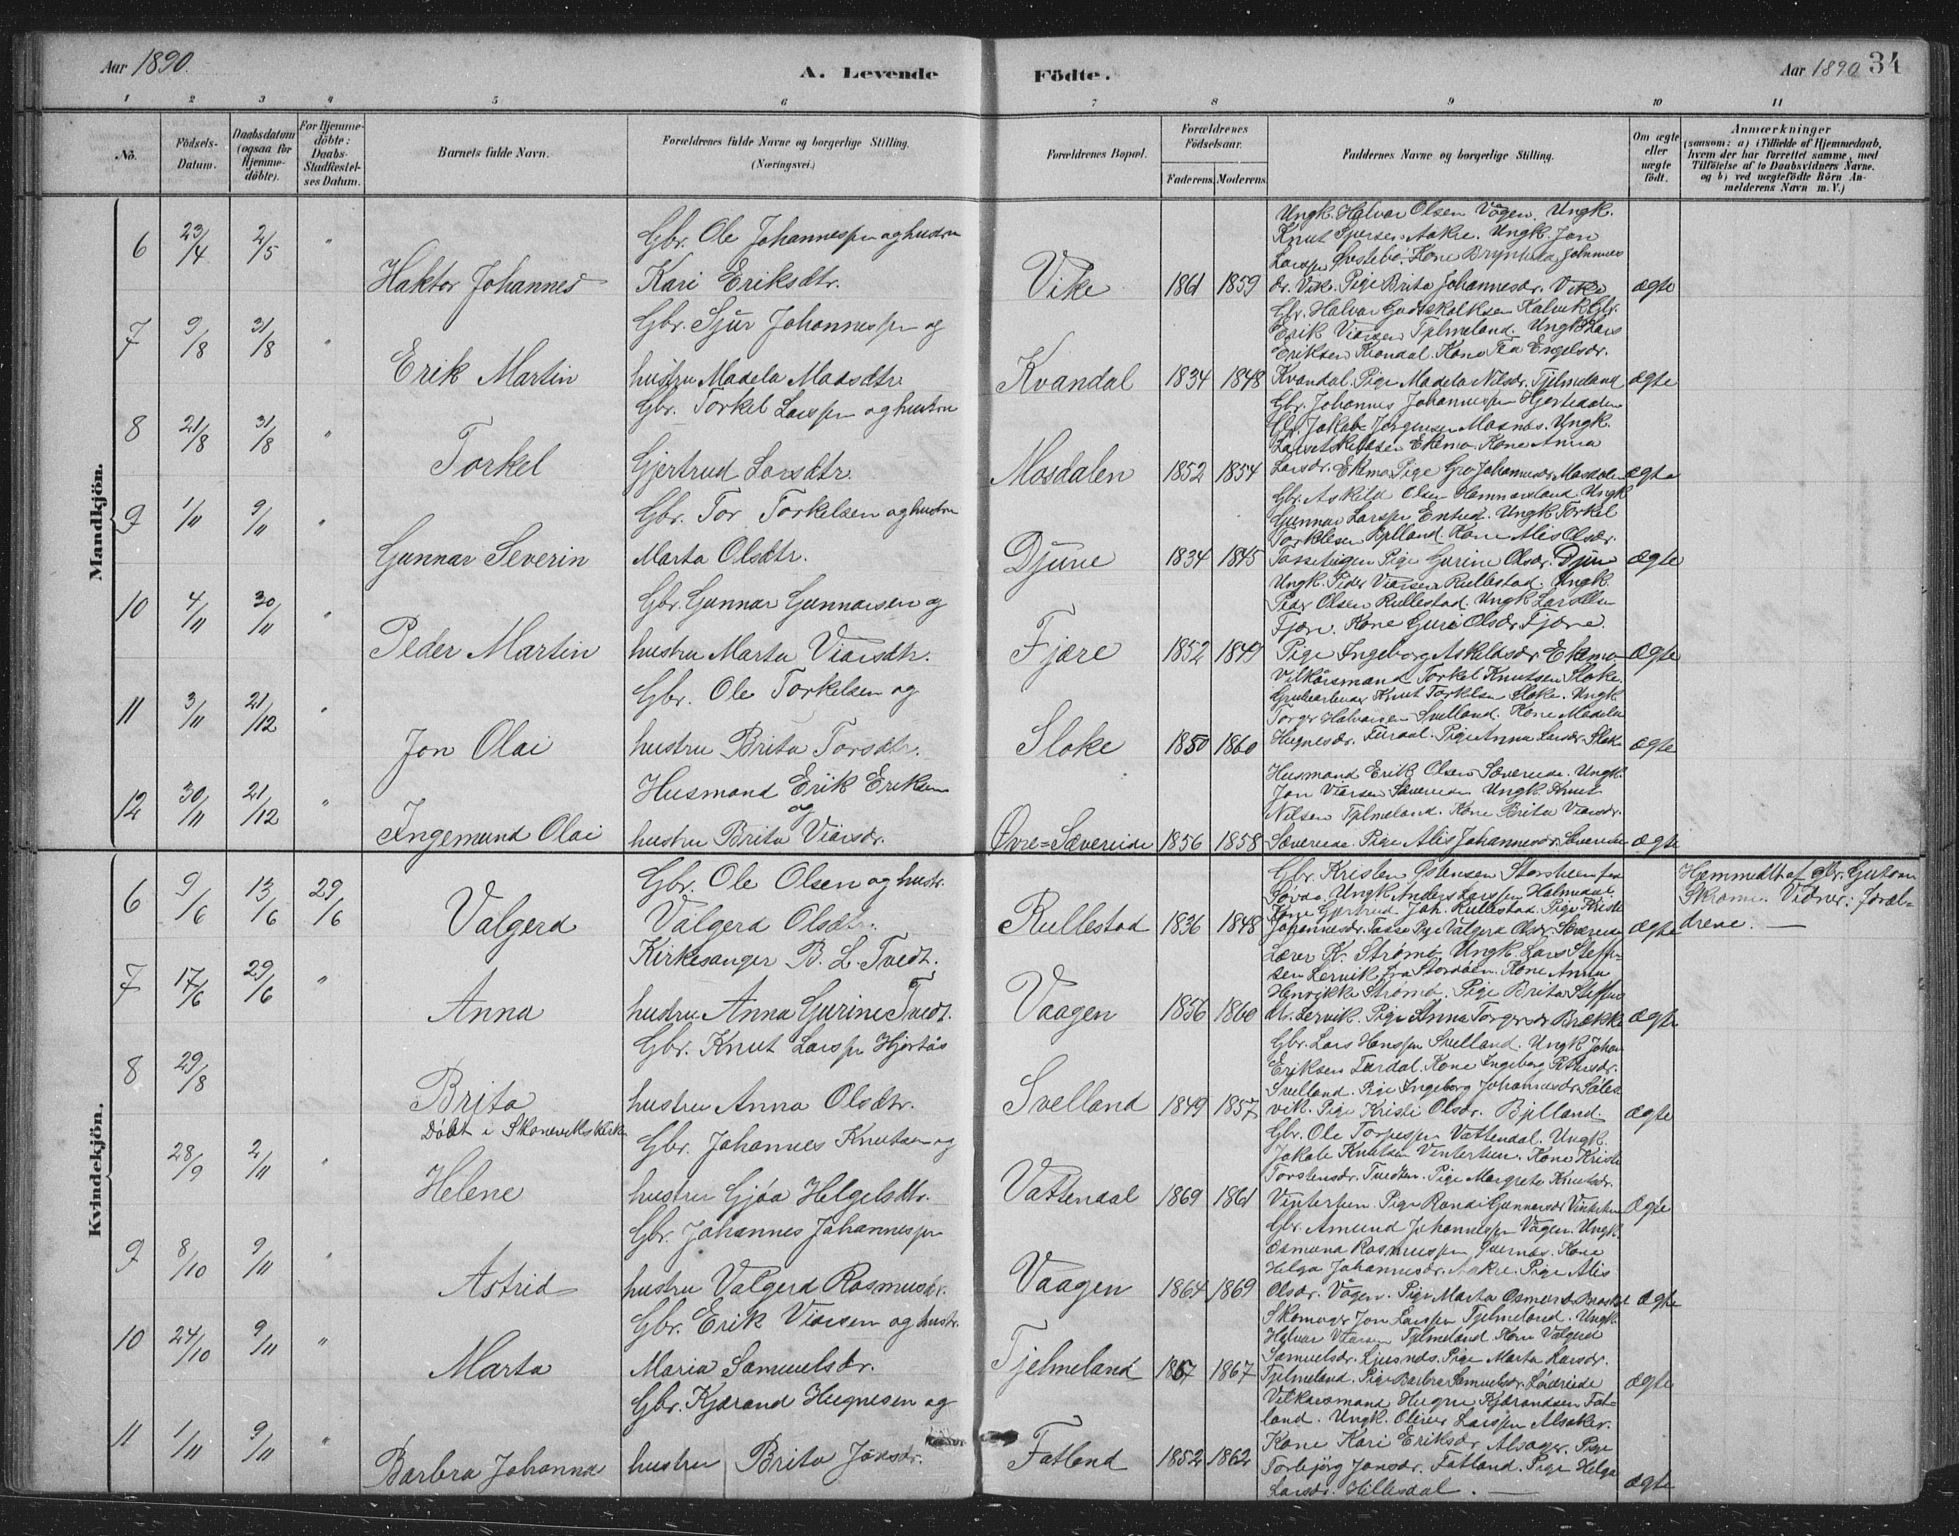 Aar 1890.
A. Levende
Födte.
Aar 1890
34
1 2 3 4 5 6 7 8 9 10 11
No.
Födsels-
Datum.
Daabsdatum
(ogsaa for
Hjemme-
döbte).
For Hjemme-
döbte:
Daabs-
Stadfæstel-
ses Datum.
Barnets fulde Navn.
Forældrenes fulde Navne og borgerlige Stilling.
(Næringsvei.)
Forældrenes Bopæl.
Forældrenes
Födselsaar.
Faderens. Moderens.
Faddernes Navne og borgerlige Stilling.
Om ægte
eller
uægte
födt.
Anmærkninger
(saasom: a) i Tilfælde af Hjemmedaab,
hvem der har forrettet samme, med
Tilföielse af to Daabsvidners Navne.
og b) ved uægtefödte Börn An-
melderens Navn m. V.)
Mandkjön.
6 23/4 2/5 "
Haktor Johannes
Gbr. Ole Johannessen og hustru
Kari Eriksdtr.
Vike 1861 1859
Ungk. Halvor Olsen Vågen. Ungk.
Knut Sjursen Aakre. Ungk. Jon
Larssen Kone Brynhilda Johannes
dr. Vik. Pige Brita Johannesdr. Vike
ægte
7 9/8 31/8 "
Erik Martin
Gbr. Sjur Johannessen og
hustru Madela Madsdtr.
Kvandal 1834 1848
Gbr. Halvor Godtskalksen Kalvik Gbr.
Erik Viarsen Tjelmeland. Ungk Lars
Eriksen Kvandal. Kone Engelsdr.
Kvandal. Pige Madela Nilsdr. Tjelmeland
ægte
8 21/8 31/8 "
Torkel
Gbr. Torkel Larssen og hustru
Gjertrud Larsdtr.
Mosdalen 1852 1854
Gbr. Johannes Johannessen
Gbr. Jakob Jørgensen Mosnes. Ungk.
Ekemo. Kone Anna
Larsdr. Ekemo Pige Gro Johannesdr Mosdalen
ægte
9 1/11 9/11 "
Gunnar Severin
Gbr. Tor Torkelsen og hustru
Marta Olsdtr.
Djune 1834 1845
Gbr. Askild Olsen Ungk
Gunnar Larssen Ungk Torkel
Torkelsen Kone Alis Olsdr.
Pige Gurine Olsdr. Djun
ægte
10 4/11 30/11 "
Peder Martin
Gbr. Gunnar Gunnarsen og
hustru Marta Viarsdtr.
Fjære 1852 1849
Ungk. Peder Viarsen Rullestad. Ungk.
Peder Olsen Rullestad. Ungk Lars Olsen
Kone Guri Olsdr Fjære.
Pige Ingeborg Askildsdr Ekemo
ægte
11 3/11 21/12 "
Jon Olai
Gbr. Ole Torkelsen og
hustru Brita Torsdtr.
Sloke 1850 1860
Vilkårsmand Torkel Knutsen Sloke.
Knut Torkelsen Sloke. Ungk
Halvorsen Svelland. Kone Madela
Hugnesdr. Pige Anna Larsdr. Slok
ægte
12 30/11 21/12 "
Ingemund Olai
Husmand Erik Eriksen
og
hustru Brita Viarsdr.
Øvre=Sævereide 1856 1858
Husmand Erik Olsen Sævereide. Ungk.
Jon Viarsen Sævereide Ungk
Nilsen Tjelmeland. Kone Brita Viarsdr.
Sævereide. Pige Alis Johannesdr Sævereide
ægte
Kvindekjön.
6 9/6 13/6 29/6
Valgerd
Gbr. Ole Olsen og hustr.
Valgerd Olsdtr.
Rullestad 1836 1848
Gbr. Kristen Østensen fra
Ungk Anders Larssen
Kone Gjertrud Joh. Rullestad. Pige Kristi
Johannesdr. Pige Valgerd Olsdr Sævereide
ægte
Hæmmedøbt af Gbr. Gutorm
Vidner: foræl-
drene. —
7 17/6 29/6 "
Anna
Kirkesanger B. L. Tvedt.
hustru Anna Gurine Tvedt.
Vaagen 1856 1860
Lærer K. Strømø Ungk. Lars Steff-
sen Lervik fra Stordöen. Kone Anna
Henrikke Strømø. Pige Brita Steffens
dtr. Lervik. Pige Anna Torgersdr Brække
ægte
8 29/8
Brita
Döbt i Skonevikskirk
Gbr. Knut Larssen Hjortås
hustru Anna Olsdtr.
Svelland 1849 1857
Gbr. Lars Hanssen Svelland. Ungk Johan
Eriksen Kone Ingeborg
Svelland. Pige Ingeborg Johannesdr
vik. Pige Kristi Olsdr. Bjelland.
ægte
28/9 2/11 "
Helene
Gbr. Johannes Knutsen og
hustru Gjøa Helgesdtr.
Vattendal 1869 1861
Gbr. Ole Vattendal. Ungk.
Jakob Knutsen Vintertun. Kone Kristi
Torstensdr. Tvedten. Pige Margrete Knutsdr.
Vintertun. Pige Randi Gunnarsdr Vintertun
ægte
9 8/10 9/11 "
Astrid
Gbr. Johannes Johannessen
hustru Valgerd Rasmusdr.
Vaagen 1864 1869
Gbr. Amund Johannessen Vågen. Ungk.
Osmund Rasmussen Kone
Helga Johannesdr. Aakre. Pige Alis
Olsdr. Vågen. Pige Marta
ægte
10 24/10 9/11 "
Marta
Gbr. Erik Viarsen og hustr.
Maria Samuelsdr.
Tjelmeland 1867 1867
Skomager Jon Larssen Tjelmeland. Ungk
Halvor Viarsen Tjelmeland Kone Valgerd
Samuelsdr. Pige Marta Larsdr.
Tjelmeland. Pige Barbra Samuelsdr.
ægte
11 1/11 9/11 "
Barbra Johanna
Gbr. Kjærand Hugnesen og
hustru Brita Jonsdr.
Fatland 1852 1862
Vilkårsmand Hugne Kjærandsen Fat-
land. Ungk. Oliver Larssen Alsaker.
Kone Kari Eriksdr Alsager. Pige
Torbjörg Jonsdr. Fatland. Pige Helga
Larsdr. Hillesdal. —
ægte